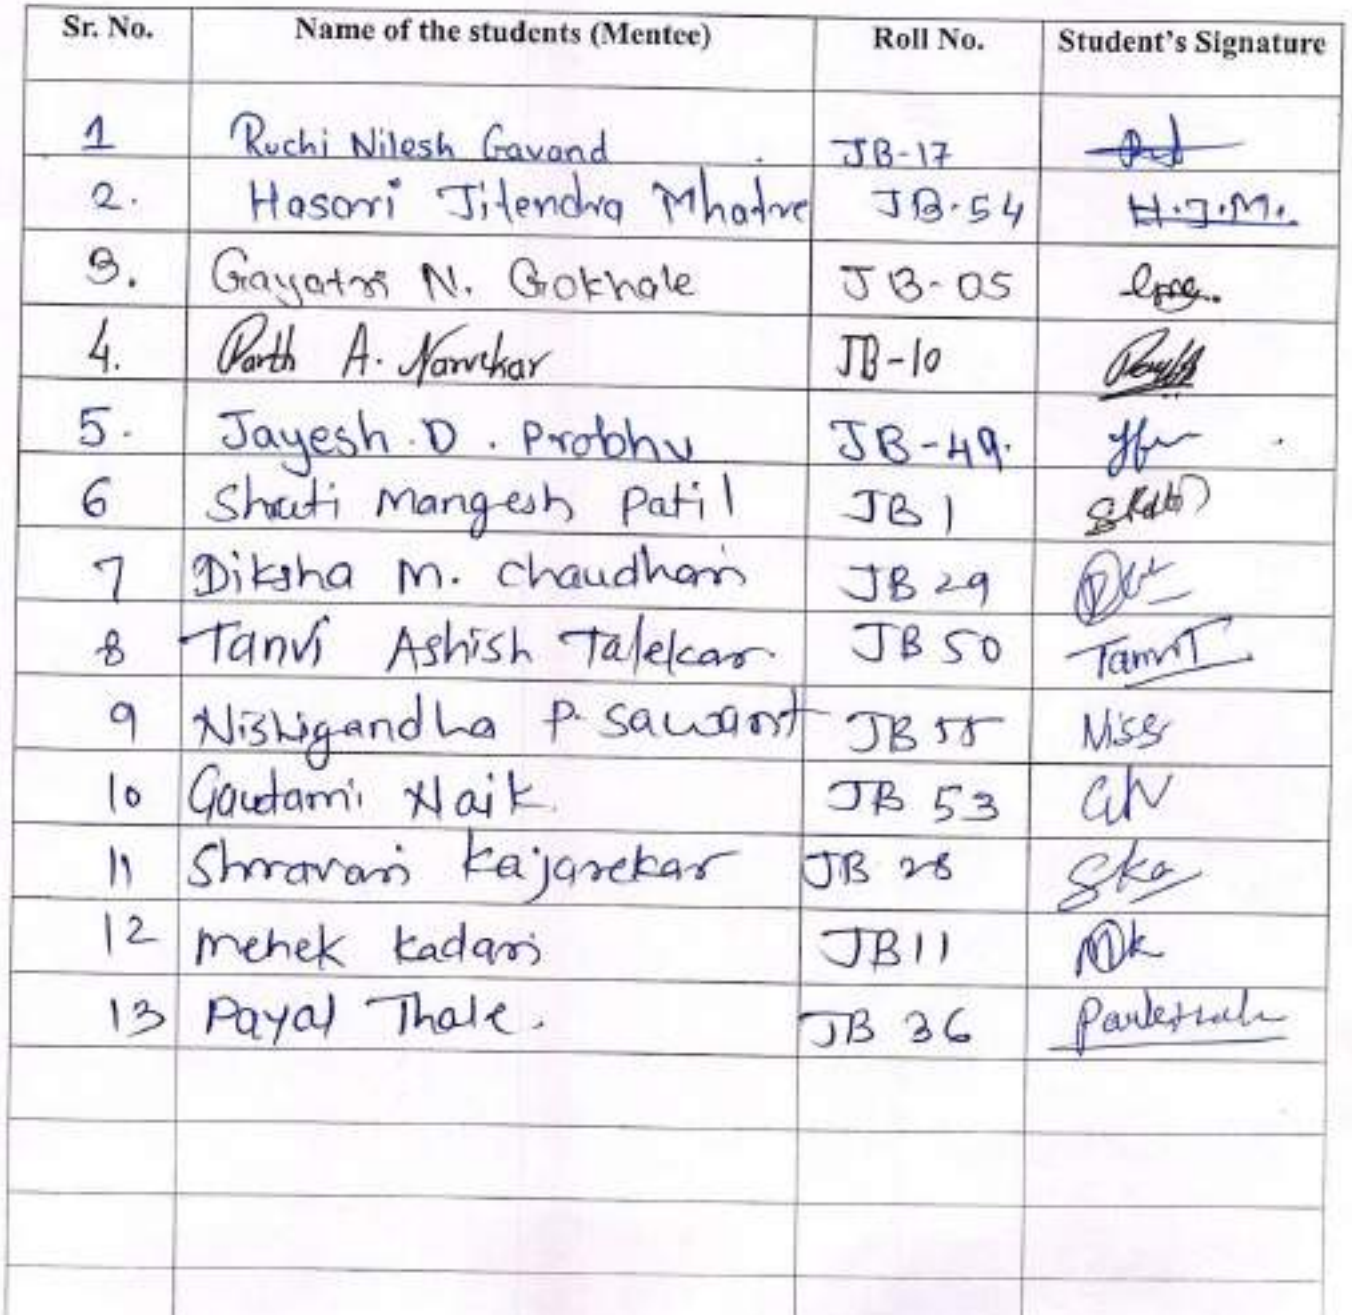 Sr. No. Name of the students (Mentee) Roll No. Student's Signature
1 Ruchi Nilesh Gavand JB-17
2. Hasori Jitendra Mhatre JB-54 H.J.M.
3. Gayatri N. Gokhale JB-05
4. Parth A. Narvekar JB-10
5. Jayesh D. Prabhu JB-49.
6 Shruti Mangesh Patil JB 1
7 Diksha M. Chaudhari JB 29
8 Tanvi Ashish Talekar JB 50 TanviT
9 Nishigandha P. Sawant JB 55 Niss
10 Gautami Naik JB 53 GN
11 Shravani Kajarekar JB 28 Ska
12 Mehek Kadari JB11 Mk
13 Payal Thale. JB 36